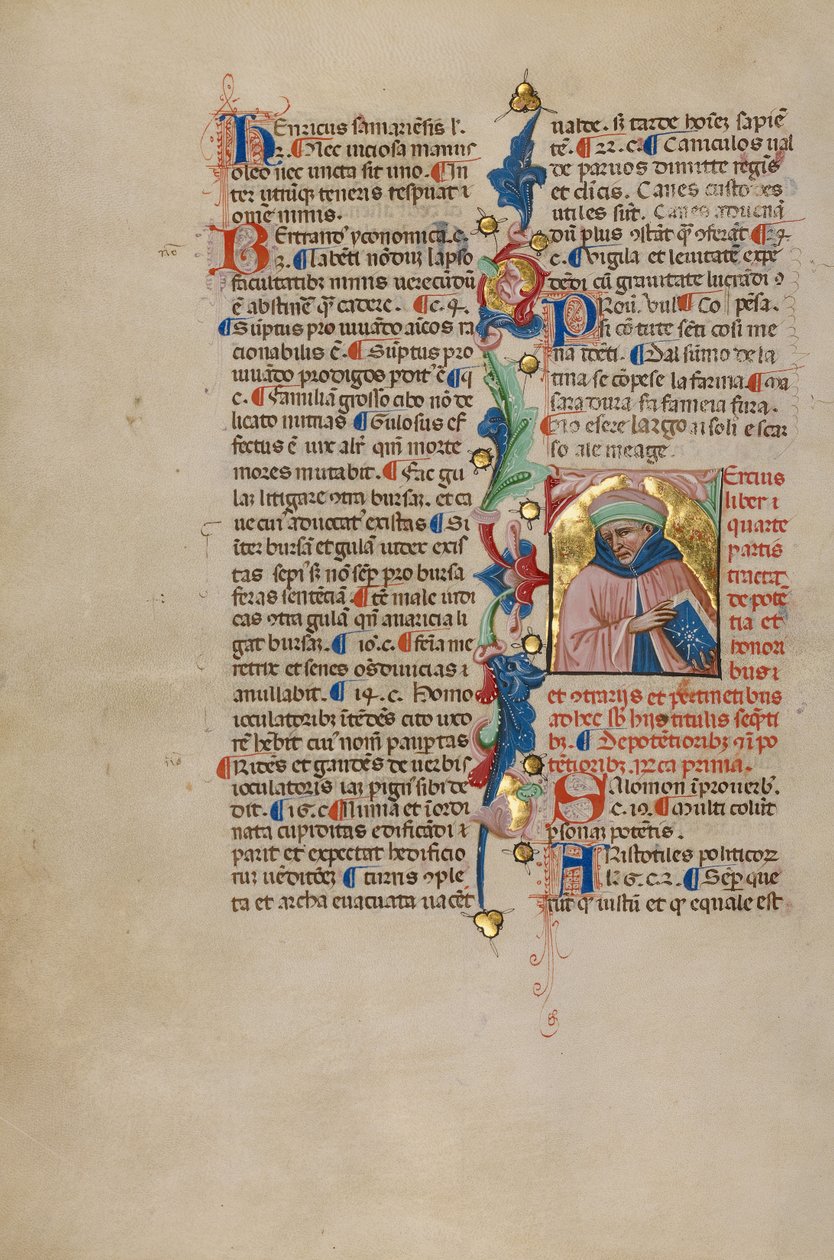 HEnricus samariēsis l'.
2. ¶Nec uiciosa manus
oleo nec uncta sit uno. ¶In
ter utrūq; teneris respuat i
omē nimis.
BErtrand' yconomica. c.
2. ¶labēti nōdum lapso
facultatibz nimis uerecūdū
ē abstinē q̄ cadere. ¶c. 4.
¶Sūptus pro uiuādo aicos ra
cionabilis ē. ¶Sūptus pro
uiuādo prodigos p̄dit' ē ¶q
c. ¶familiā grosso cibo nō de
licato nutrias ¶Gulosus ef
fectus ē uix alr̄ quī morte
mores mutabit. ¶fac gu
laꝫ litigare ꝯtra bursaꝫ. et ca
ue cui' aduocat' existas ¶Si
īter bursā et gulā iudex exis
tas sepi' sꝫ nō sēp̄ pro bursa
feras sentēciā. ¶tē male iudi
cas ꝯtra gulā quī auaricia li
gat bursaꝫ. ¶10. c. ¶fēia me
retrix et senes oēs diuicias i
anullabit. ¶14. c. Homo
ioculatoribz ītēdēs cito uxo
rē hēbit cui' nom̄ paup̄tas
¶Ridēs et gaudēs de uerbis
ioculatoris iaꝫ pign' sibi de
dit. ¶16. c ¶Nimia et īordi
nata cupiditas edificādi i
parit et expectat hedificio
rum uēditōeꝫ ¶turris ꝯple
ta et archa euacuata uacēt
ualde. sꝫ tarde hoīeꝫ sapiē
tē. ¶22. c. ¶Caniculos ual
de paruos dimitte regīs
et clīcis. Canes custodes
utiles sūt. Canes aduenā
dū plus ꝯstāt q̄ ꝯferāt ¶24
c. ¶Vigila et leuitatē expē
dēdi cū grauitate lucrādi ꝯ
PRou. uul' ¶Co pēsa.
si cō tute sēti cosi me
na tdēti. ¶Dal sūmo de la
tina se cōpese la farina. ¶Ma
sara dura fa fameia fura.
¶No esere largo ai soli e scar
so ale meage.
Ercius
liber i
quarte
partis
tractā
de potē
tia et
honori
bus i
et ꝯtrariis et pertinētibus
ad hec sb' hiis titulis seqēti
bꝫ. ¶De potētioribꝫ ī po
tētioribꝫ. Rca prima.
SAlomon ī prouerb'.
c. 19. ¶Multi colūt
p̄sonaꝫ potētis.
ARistotiles politicoꝝ
l' 6. c. 2. ¶Sēp̄ que
rūt q' iustū et q' equale est